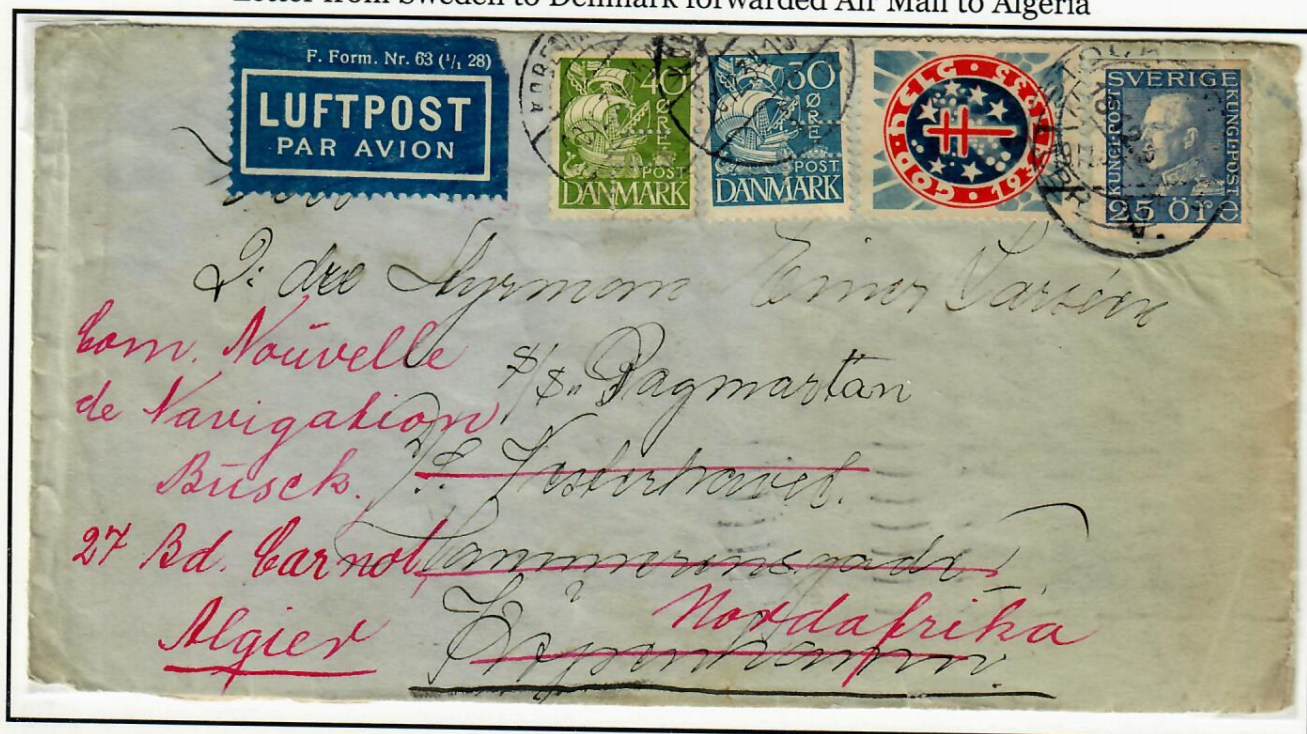 Letter from Sweden to Denmark forwarded Air Mail to Algeria
F. Form. Nr. 63 (1/1 28)
LUFTPOST
PAR AVION
40
ØRE
POST
DANMARK
30
ØRE
POST
DANMARK
GOD · HELG · 193
SVERIGE
KUNGL·POST
KUNGL·POST
25 ÖRE
2: dre Styrman Einar Larsén
Com. Nouvelle
de Navigation
Busck.
s/s Dagmartan
Vesterhavet.
27 Bd. Carnot
Algier
Nordafrika
Köpenhamn.